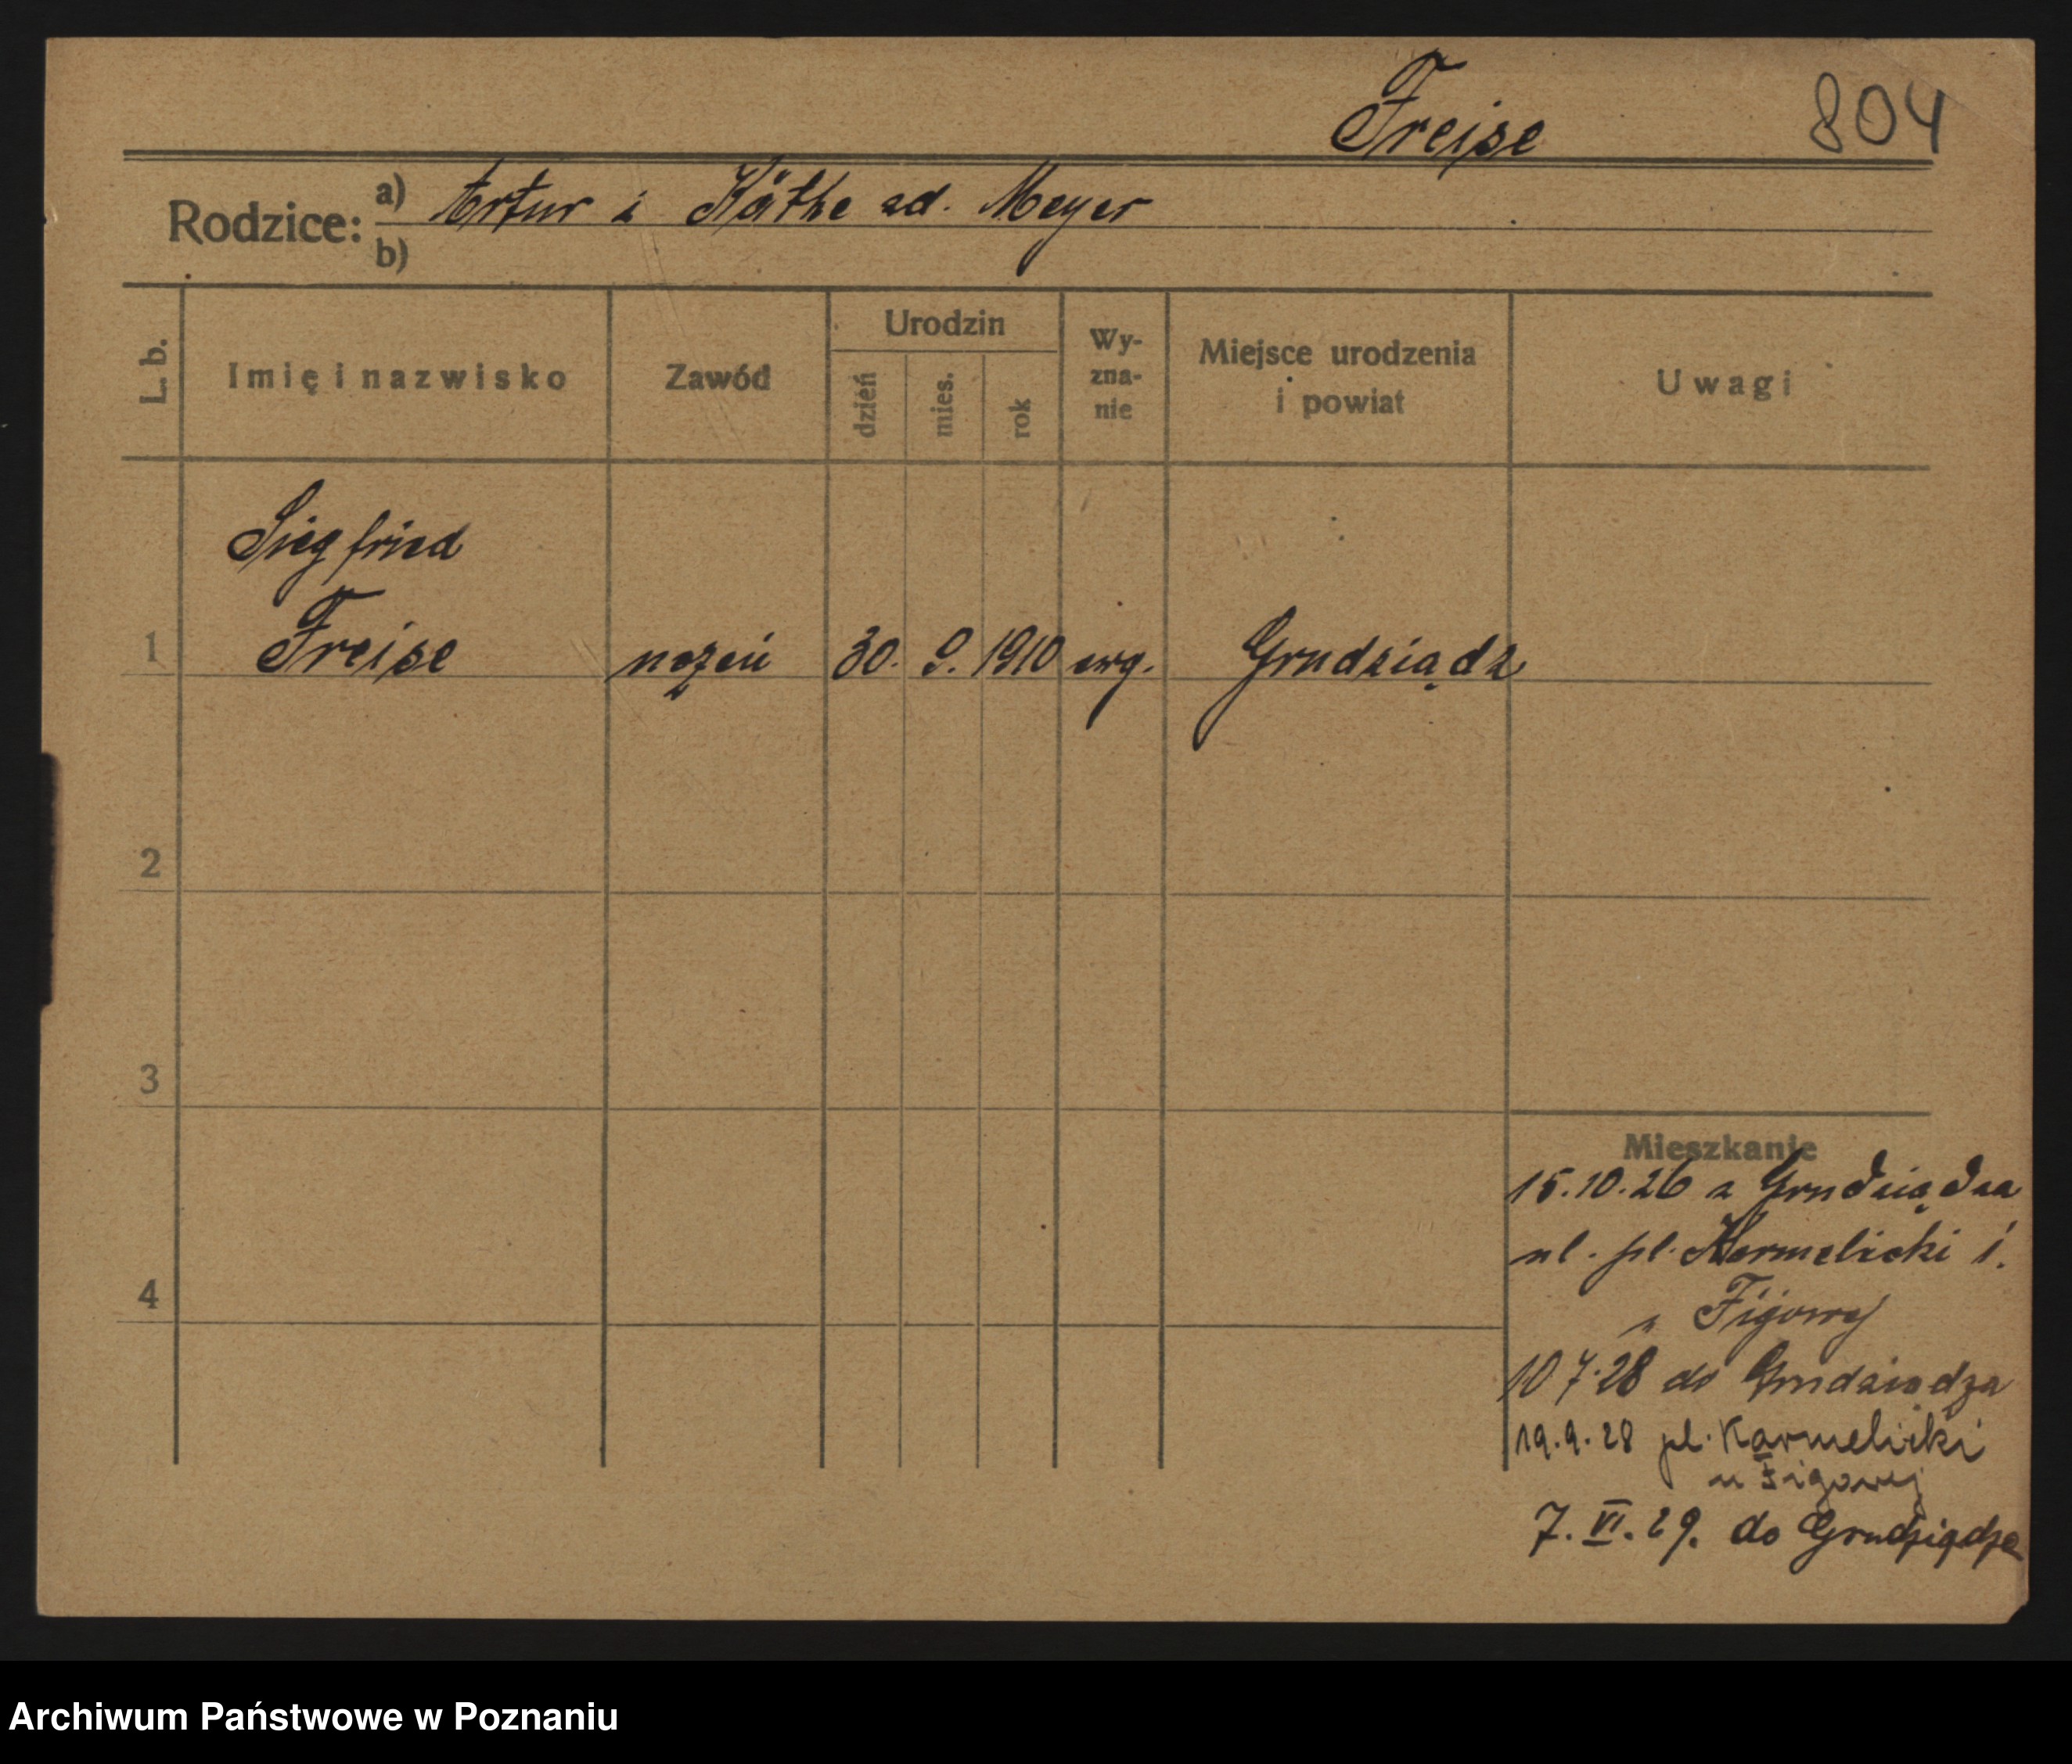 Freise 804
Rodzice: a) Artur i Käthe zd. Meyer
b)
L. b. Imię i nazwisko Zawód Urodzin dzień mies. rok Wy-zna-nie Miejsce urodzenia i powiat Uwagi
Siegfried
1 Freise uczeń 30. 9. 1910 ewg. Grudziądz
2
3
Mieszkanie
15.10.26 z Grudziądza
ul. pl. Karmelicki 1.
4
" Figowej
10 7.28 do Grudziądza
19.9.28 pl. Karmelicki
u Figowej
7. VI. 29. do Grudziądza
Archiwum Państwowe w Poznaniu